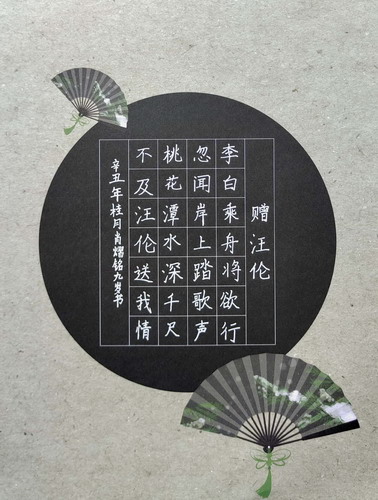 赠汪伦
李白乘舟将欲行
忽闻岸上踏歌声
桃花潭水深千尺
不及汪伦送我情
辛丑年桂月肖熠铭九岁书